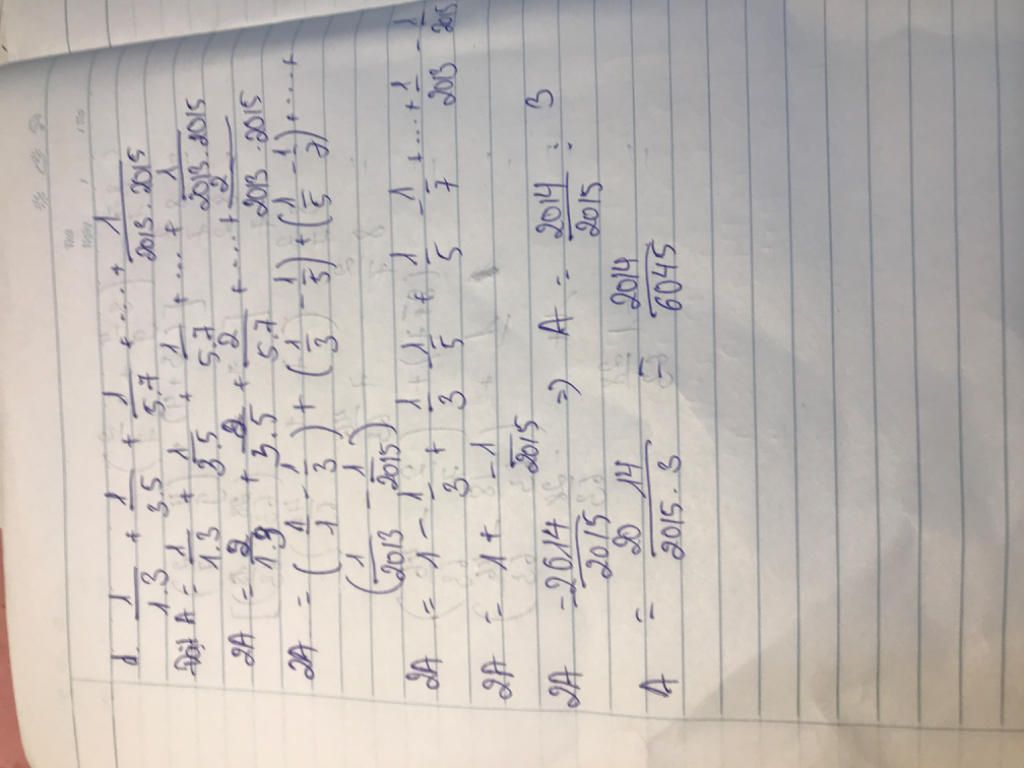 d 1/1.3 + 1/3.5 + 1/5.7 + ... + 1/2013.2015
A = 1/1.3 + 1/3.5 + 1/5.7 + .... + 1/2013.2015
2A = 2/1.3 + 2/3.5 + 2/5.7 + .... + 2/2013.2015
2A = (1/1 - 1/3) + (1/3 - 1/5) + (1/5 - 1/7) + .... +
(1/2013 - 1/2015)
2A = 1 - 1/3 + 1/3 - 1/5 + 1/5 - 1/7 + .... + 1/2013 - 1/2015
2A = 1 + -1/2015
2A = 2014/2015 => A = 2014/2015 : 3
A = 2014/2015.3 = 2014/6045